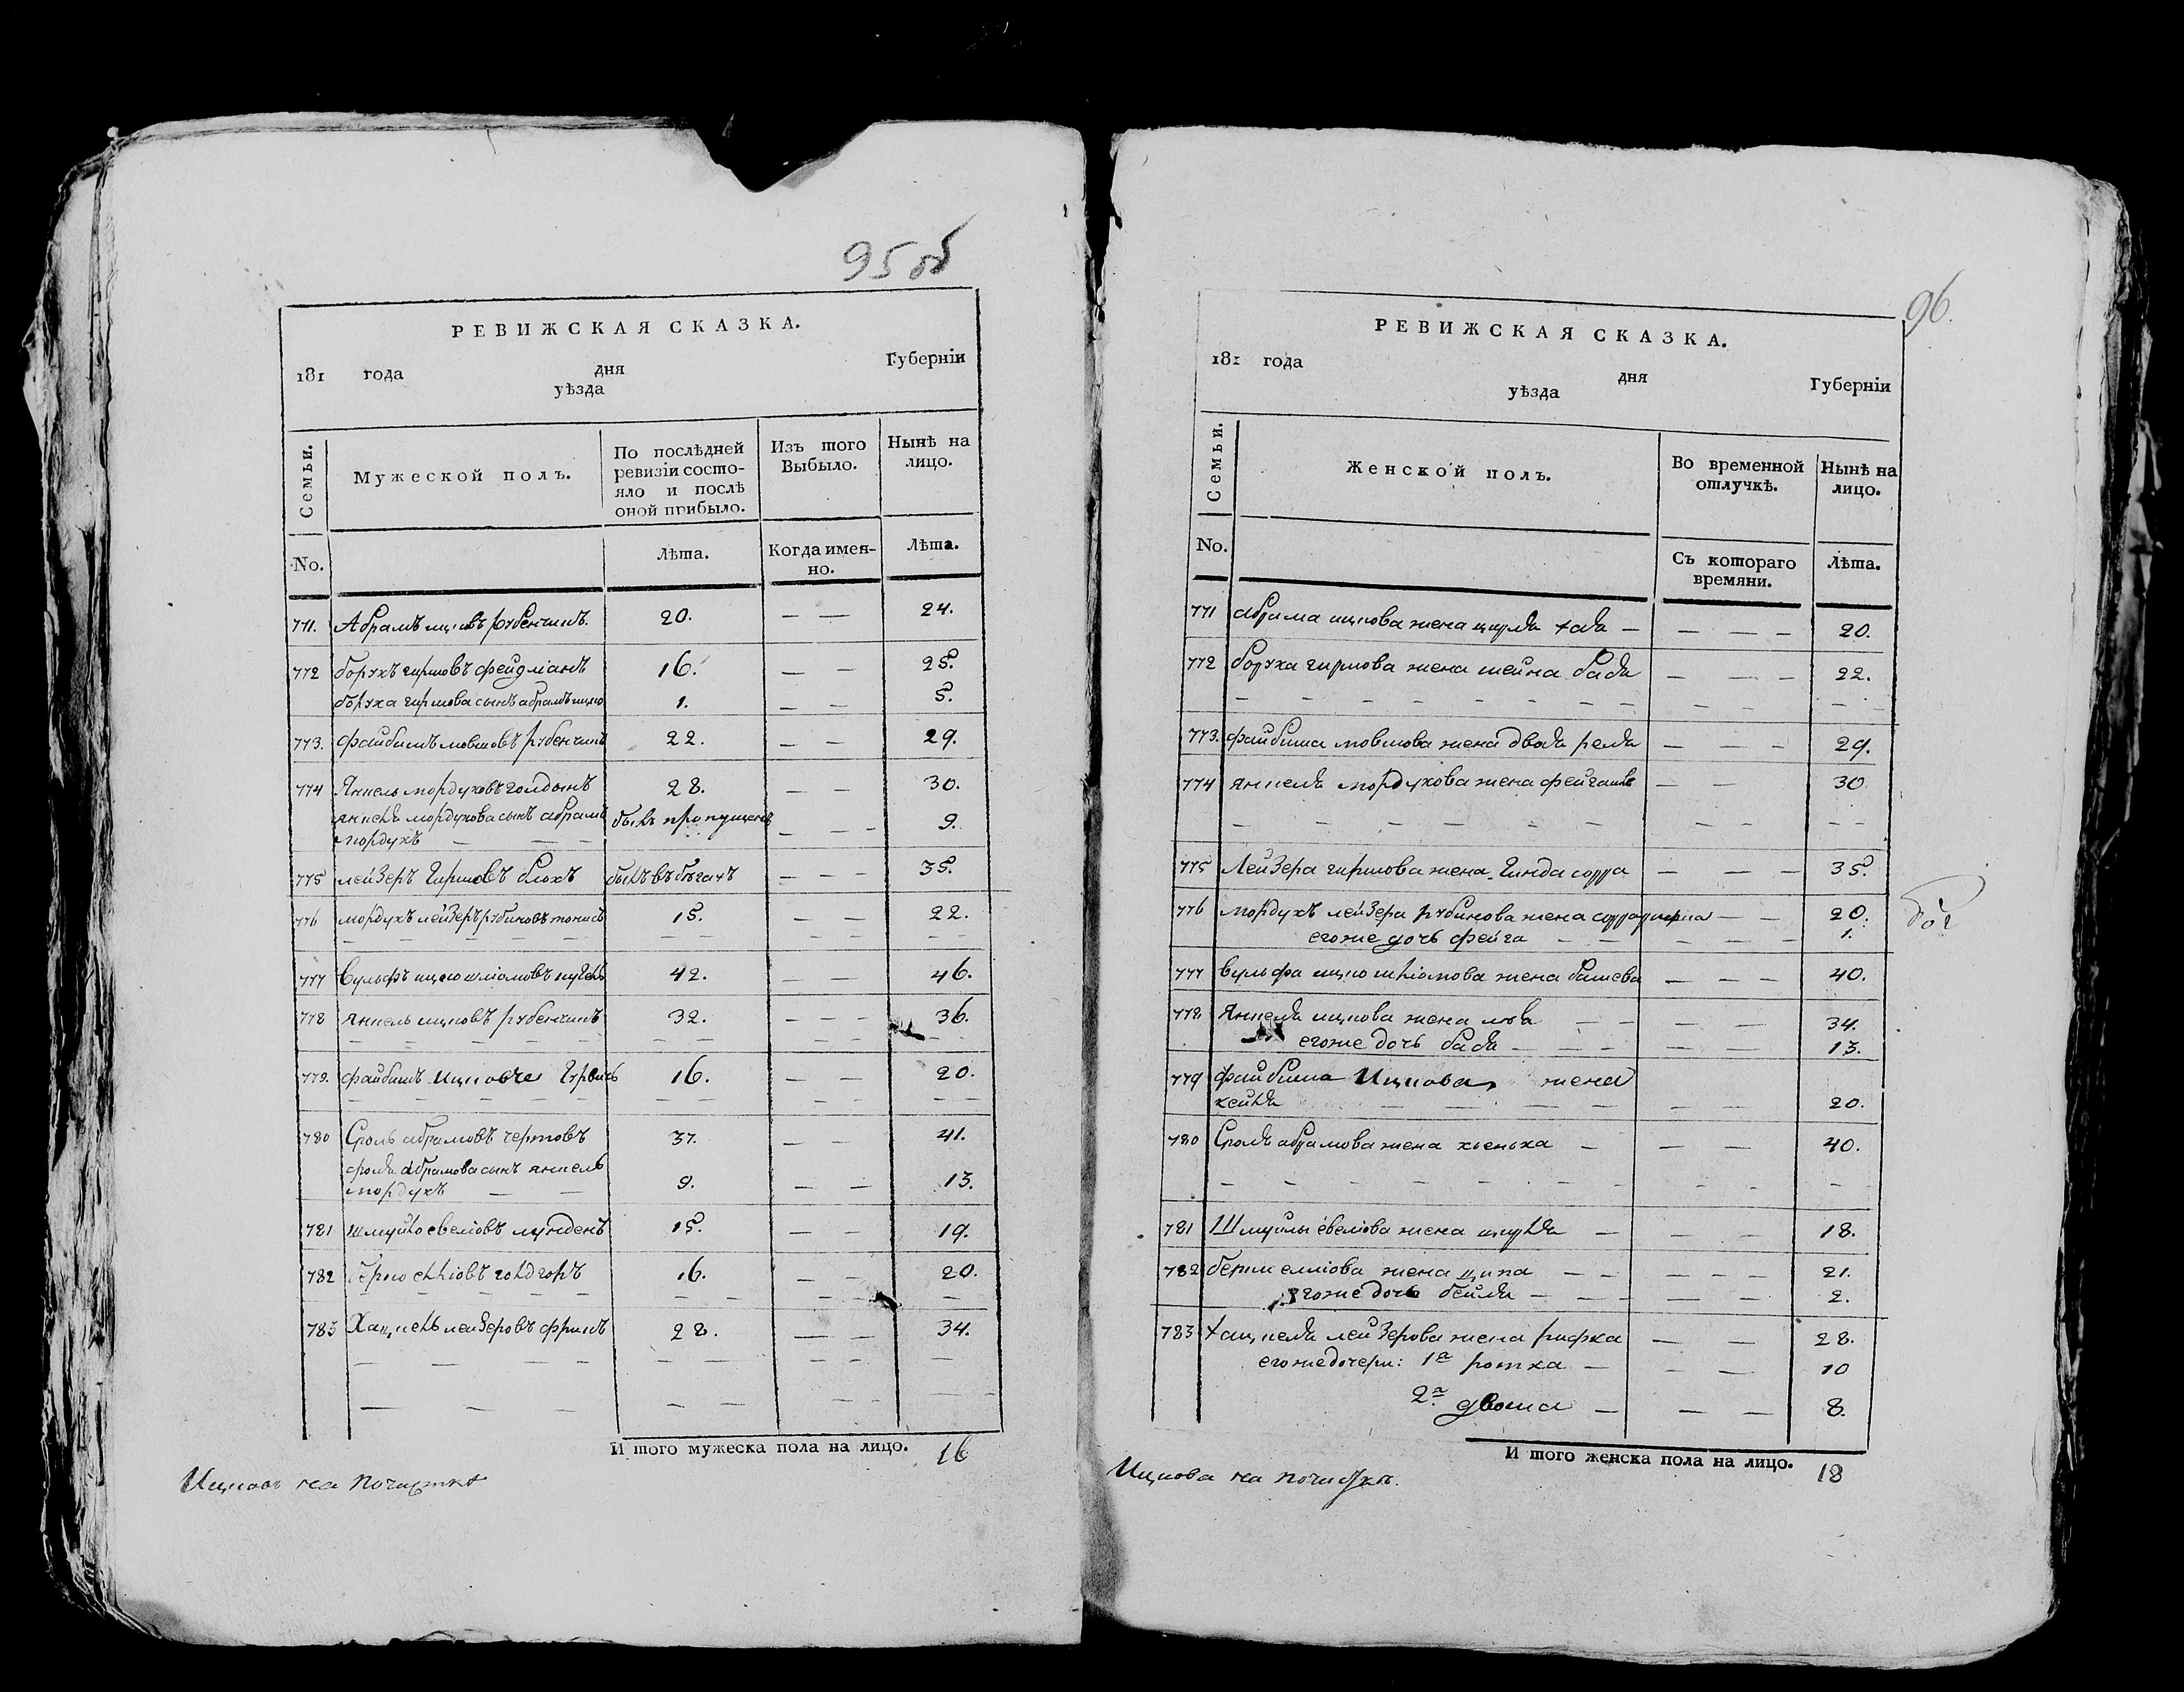 95 об
РЕВИЖСКАЯ СКАЗКА.
181 года дня Губерніи
уѣзда
Семьи. Мужеской полъ. По послѣдней ревизіи состояло и послѣ оной прибыло. Изъ того Выбыло. Нынѣ на лицо.
No. Лѣта. Когда именно. Лѣта.
771. Абрамъ ицковъ рубенчикъ. 20. — — 24.
772 борухъ гиршовъ фейдманъ 16. — — 25.
боруха гиршова сынъ абрамъ ицко 1. — — 5.
773. файбишъ мовшовъ рубенчикъ 22. — — 29.
774 Янкель мордуховъ голдынъ 28. — — 30.
янкеля мордухова сынъ абрамъ былъ пропущенъ — — — 9.
мордухъ — — —
775 лейзеръ Гиршовъ блохъ былъ въ бегахъ — — — 35.
776 мордухъ лейзеръ рубиновъ 15. — — 22.
777 вульфъ ицко шліомовъ 42. — — 46.
778 янкель ицковъ рубенчикъ 32. — — — 36.
779. файбишъ Ицковъ 16. — — 20.
780 Сроль абрамовъ чертовъ 37. — — 41.
сроля абрамова сынъ янкель
мордухъ — — 9. — — 13.
781 шмуйло евеліовъ лунденъ 15. — — 19.
782 берко елліовъ голдгоръ 16. — — 20.
783 Хацкель лейзеровъ фришъ 28. — — 34.
И того мужеска пола на лицо. 16
Ицковъ на почистке
96.
РЕВИЖСКАЯ СКАЗКА.
181 года дня Губерніи
уѣзда
Семьи. Женской полъ. Во временной отлучкѣ. Нынѣ на лицо.
No. Съ котораго времяни. Лѣта.
771 абрама ицкова жена цирля хая — — — — 20.
772 боруха гиршова жена шейна бася — — — 22.
773. файбиша мовшова жена двося реля — — — 29.
774 янкеля мордухова жена фейга — — 30
775 Лейзера гиршова жена Гинда сорра — — — 35.
776 мордухъ лейзера рубинова жена сорра — — 20.
егоже дочь фейга — — — — — 1.
777 вульфа ицко шліомова жена башева — — — 40.
778 Янкеля ицкова жена — — — — 34.
егоже дочь бася — — — — — 13.
779 файбиша Ицкова жена
кейля — — — — — — 20.
780 Сроля абрамова жена хьенька — — — 40.
781 Шмуйлы евеліова жена — — — — 18.
782 берки елліова жена ципа — — — — 21.
егоже дочь бейля — — — — — 2.
783 хацкеля лейзерова жена рифка — — 28.
егоже дочери: 1я ротка — — — 10
2я двоша — — — 8.
И того женска пола на лицо. 18
Ицкова на почистке.